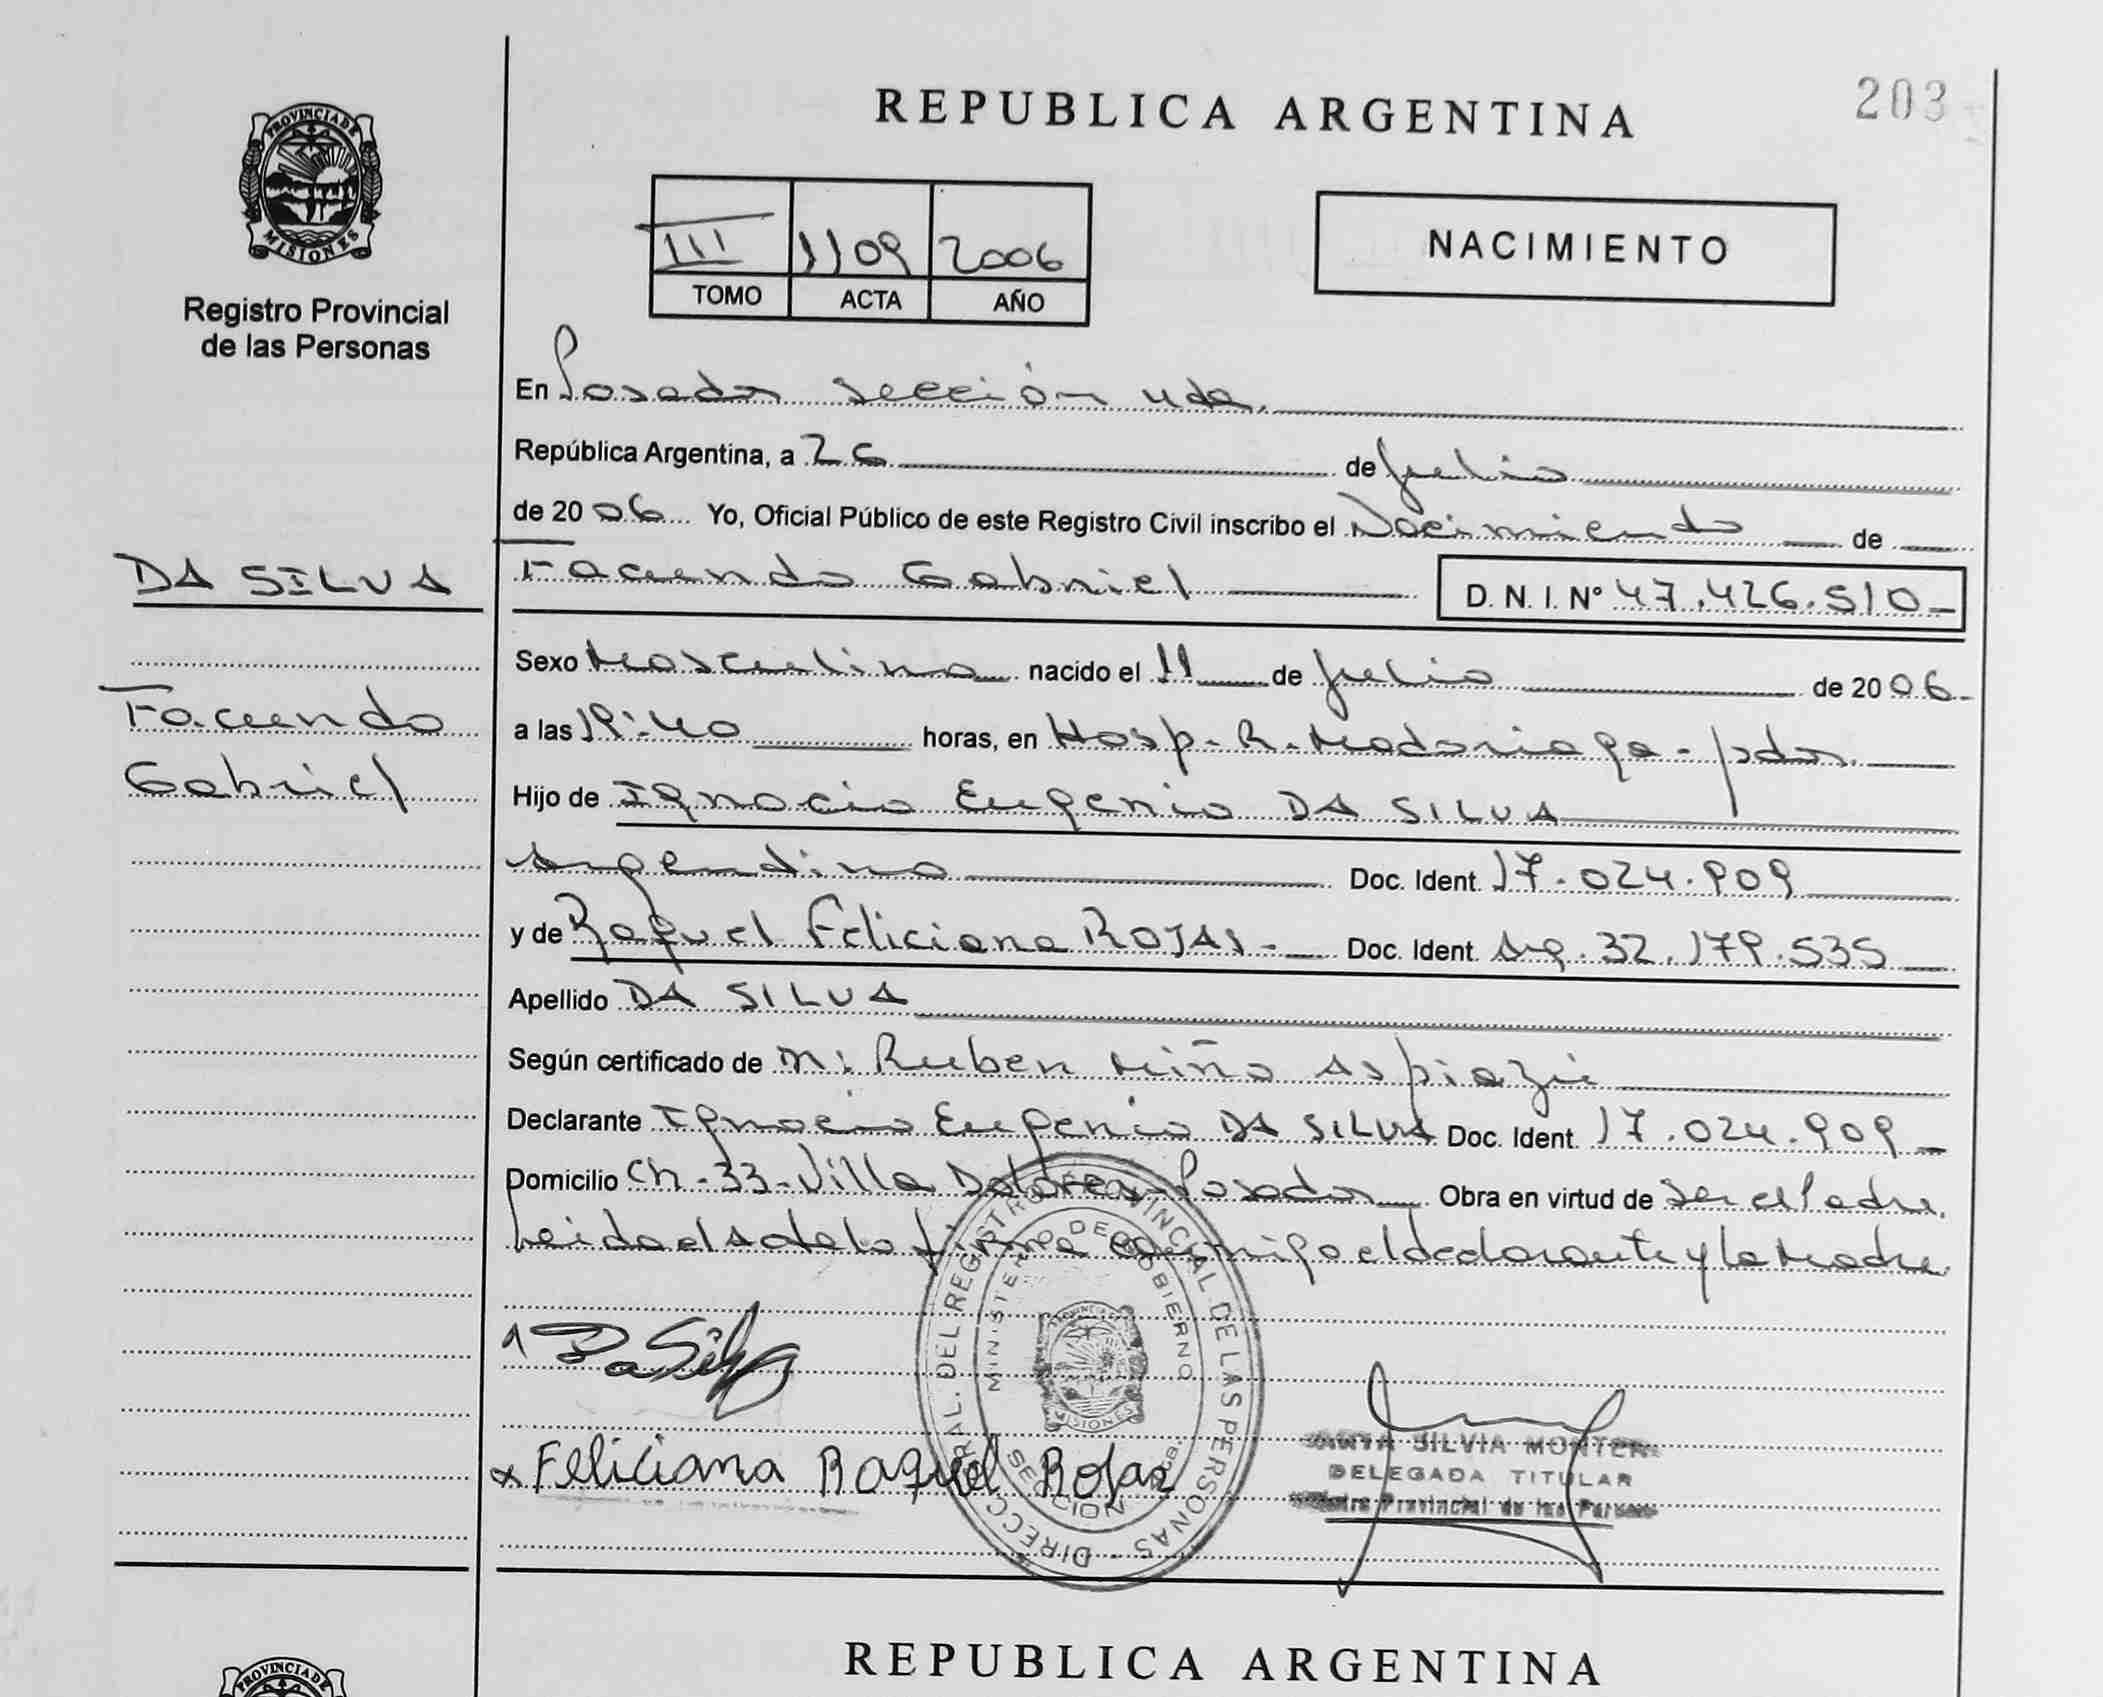 REPUBLICA ARGENTINA
203
PROVINCIA DE
MISIONES
Registro Provincial
de las Personas
III 1109 2006
TOMO ACTA AÑO
NACIMIENTO
En Posadas sección 4da.
República Argentina, a 26 de julio
de 2006 Yo, Oficial Público de este Registro Civil inscribo el Nacimiento de
DA SILVA
Facundo Gabriel D. N. I. N° 47.426.510-
Sexo Masculino nacido el 11 de julio de 2006-
Facundo
Gabriel
a las 19:40 horas, en Hosp. R. Madariaga - pdas.
Hijo de Ignacio Eugenio DA SILVA
Argentino Doc. Ident. 17.024.909
y de Raquel Feliciana ROJAS - Doc. Ident. Arg. 32.179.535
Apellido DA SILVA
Según certificado de M: Ruben Miño Aspiazú
Declarante Ignacio Eugenio DA SILVA Doc. Ident. 17.024.909-
Domicilio Ch-33-Villa Dolores-Posadas Obra en virtud de ser el Padre.
Leida el Acta la firma conmigo el declarante y la Madre
DIRECC. GRAL. DEL REGISTRO PROVINCIAL DE LAS PERSONAS
MINISTERIO DE GOBIERNO
PROVINCIA DE
MISIONES
SECCION
Da Silva
Feliciana Raquel Rojas
SILVIA MONTER
DELEGADA TITULAR
Provincial de las Person
REPUBLICA ARGENTINA
PROVINCIA DE